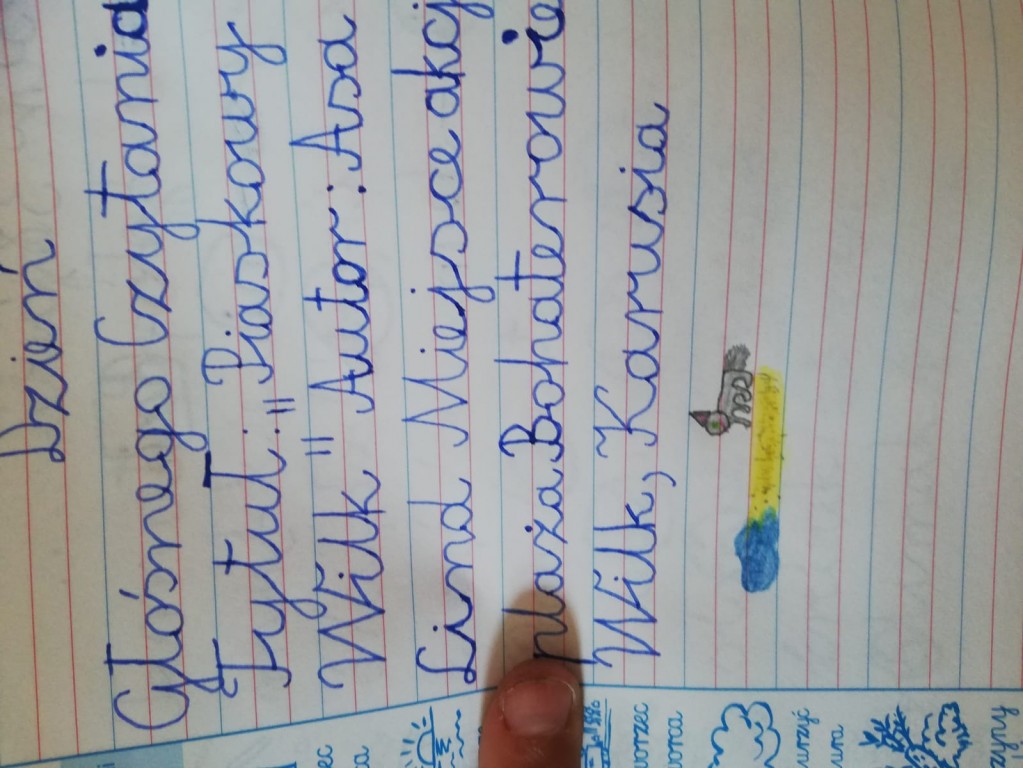 Dzień
Głośnego Czytania
Tytuł: "Piaskowy
Wilk" Autor: Asa
Lind Miejsce akcj
plaża Bohaterowie
Wilk, Karusia